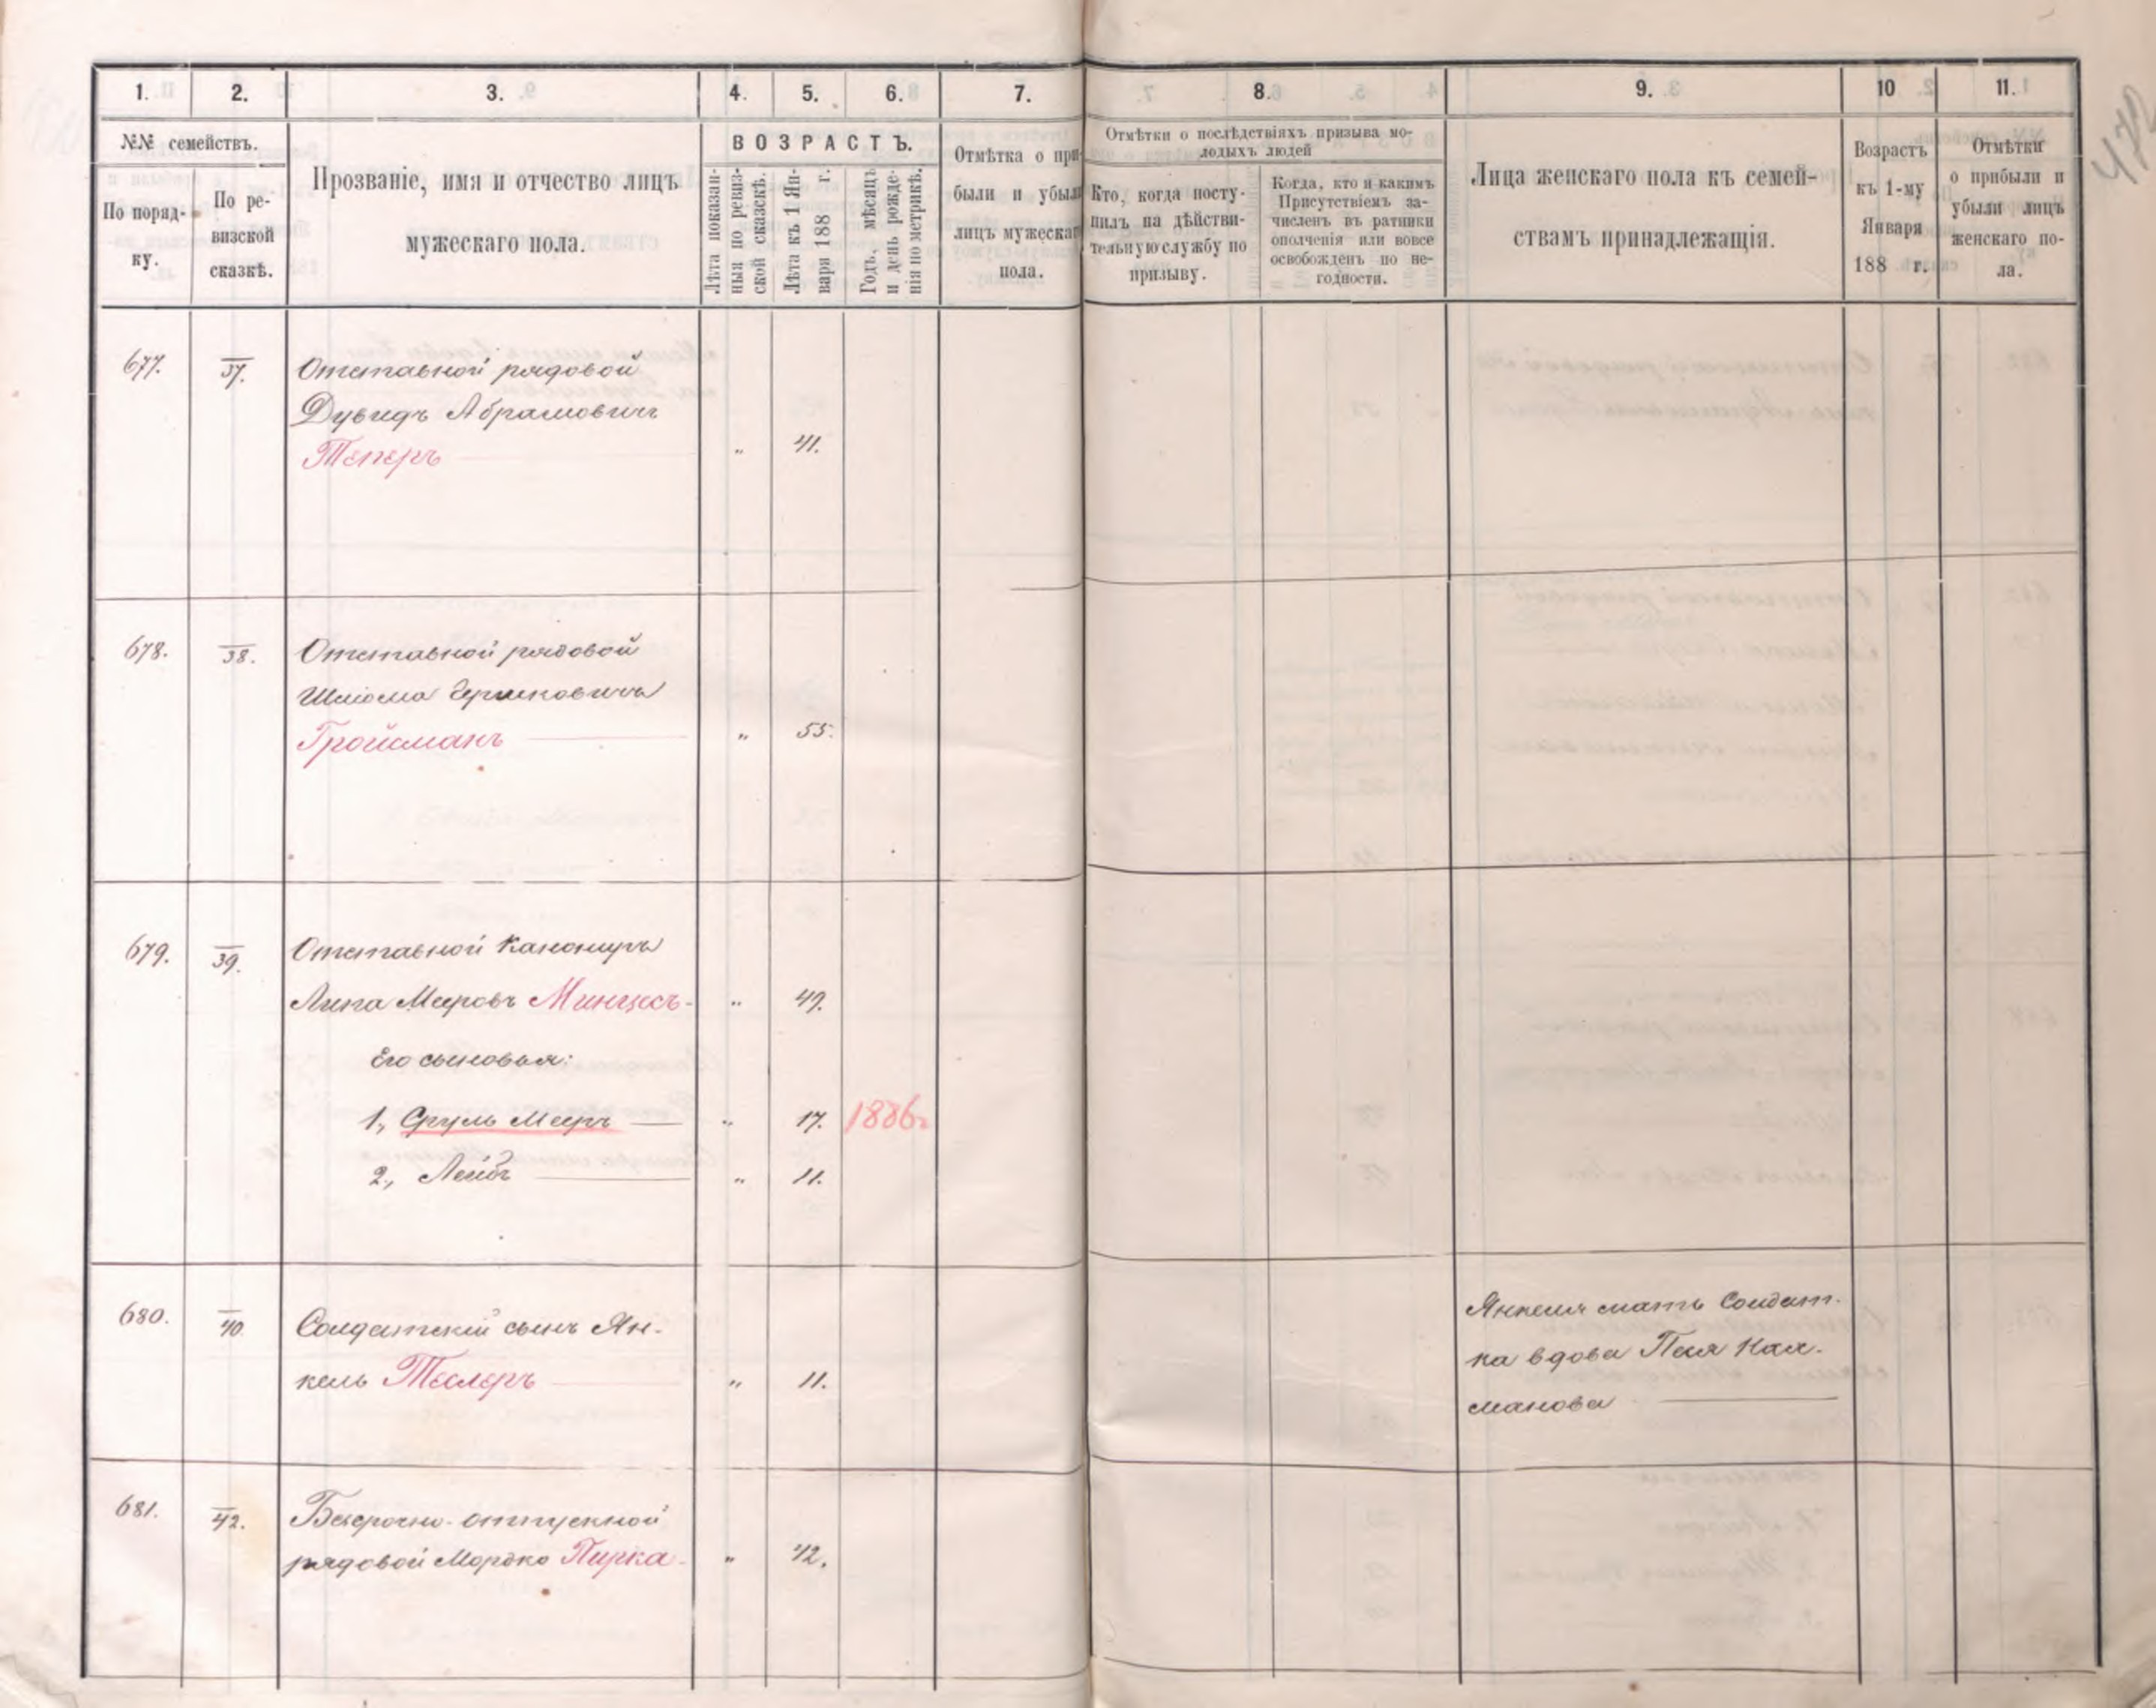 1.
2.
3.
4.
5.
6.
7.
8.
9.
10
11.
№№ семействъ.
По поряд-
ку.
По ре-
визской
сказкѣ.
Прозваніе, имя и отчество лицъ
мужескаго пола.
ВОЗРАСТЪ.
Лѣта показан-
ныя по ревиз-
ской сказкѣ.
Лѣта къ 1 Ян-
варя 188 г.
Годъ, мѣсяцъ
и день рожде-
нія по метрикѣ.
Отмѣтка о при-
были и убыли
лицъ мужескаг
пола.
Отмѣтки о послѣдствіяхъ призыва мо-
лодыхъ людей
Кто, когда посту-
пилъ на дѣйстви-
тельную службу по
призыву.
Когда, кто и какимъ
Присутствіемъ за-
численъ въ ратники
ополченія или вовсе
освобожденъ по не-
годности.
Лица женскаго пола къ семей-
ствамъ принадлежащія.
Возрастъ
къ 1-му
Января
188 г.
Отмѣтки
о прибыли и
убыли лицъ
женскаго по-
ла.
677. 37. Отставной рядовой
Дувидъ Абрамовичъ
Теперъ „ 41.
678. 38. Отставной рядовой
Шліома Гершковичъ
Гройсманъ „ 55.
679. 39. Отставной Канониръ
Липа Мееровъ Минцесъ „ 49.
Его сыновья:
1, Сруль Мееръ „ 17. 1886г
2, Лейбъ „ 11.
680. 40 Солдатскій сынъ Ян-
кель Теслеръ „ 11.
Янкеля мать Солдат-
ка вдова Песя Кал-
манова
681. 42. Безсрочно-отпускной
рядовой Мордко Пирка „ 42.